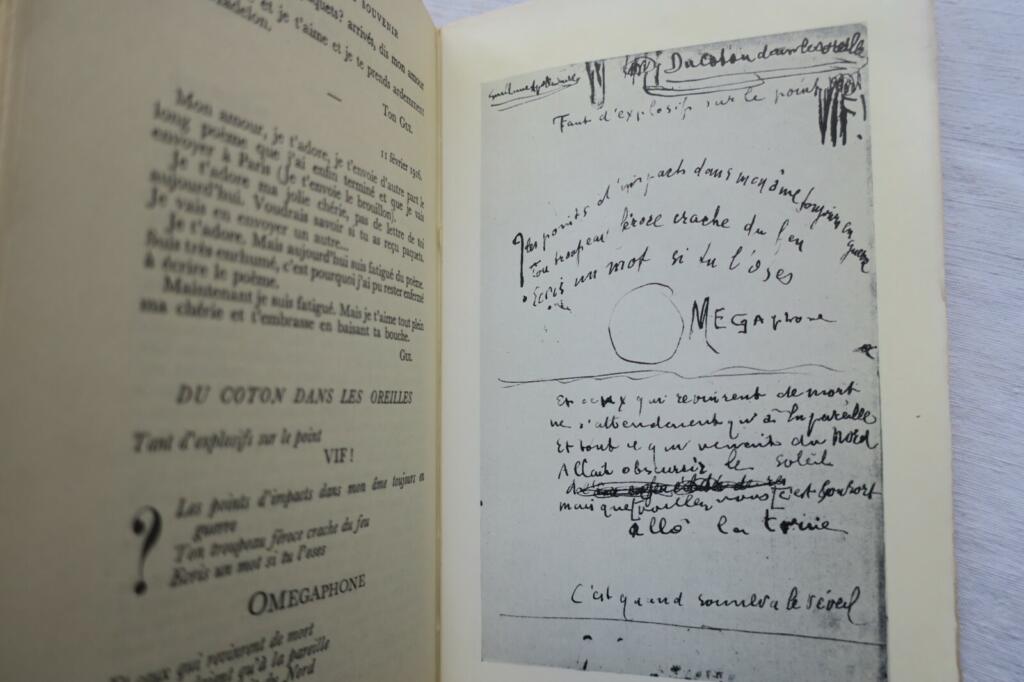 SOUVENIR
paquets? arrivés, dis mon amour
et je t'aime et je te prends ardemment
Madelon.
Ton GUI.
11 février 1916.
Mon amour, je t'adore, je t'envoie d'autre part le
long poème que j'ai enfin terminé et que je vais
envoyer à Paris (Je t'envoie le brouillon).
Je t'adore ma jolie chérie, pas de lettre de toi
aujourd'hui. Voudrais savoir si tu as reçu paquets.
Je vais en envoyer un autre...
Je t'adore. Mais aujourd'hui suis fatigué du poème.
Suis très enrhumé, c'est pourquoi j'ai pu rester enfermé
à écrire le poème.
Maintenant je suis fatigué. Mais je t'aime tout plein
ma chérie et t'embrasse en baisant ta bouche.
GUI.
DU COTON DANS LES OREILLES
Tant d'explosifs sur le point
VIF!
?
Les points d'impacts dans mon âme toujours en
guerre
Ton troupeau féroce crache du feu
Ecris un mot si tu l'oses
OMEGAPHONE
Et ceux qui revinrent de mort
qu'à la pareille
du Nord
Guillaume Apollinaire
Du coton dans les oreilles
Tant d'explosifs sur le point
VIF!
Les points d'impacts dans mon âme toujours en guerre
Ton troupeau féroce crache du feu
Ecris un mot si tu l'oses
MEGAphone
Et ceux qui revinrent de mort
ne s'attendaient qu'à la pareille
Et tout ce qui venait du Nord
Allait obscurcir le soleil
mais que voulez vous c'est son sort
allô la truie
C'est quand sonnera le réveil